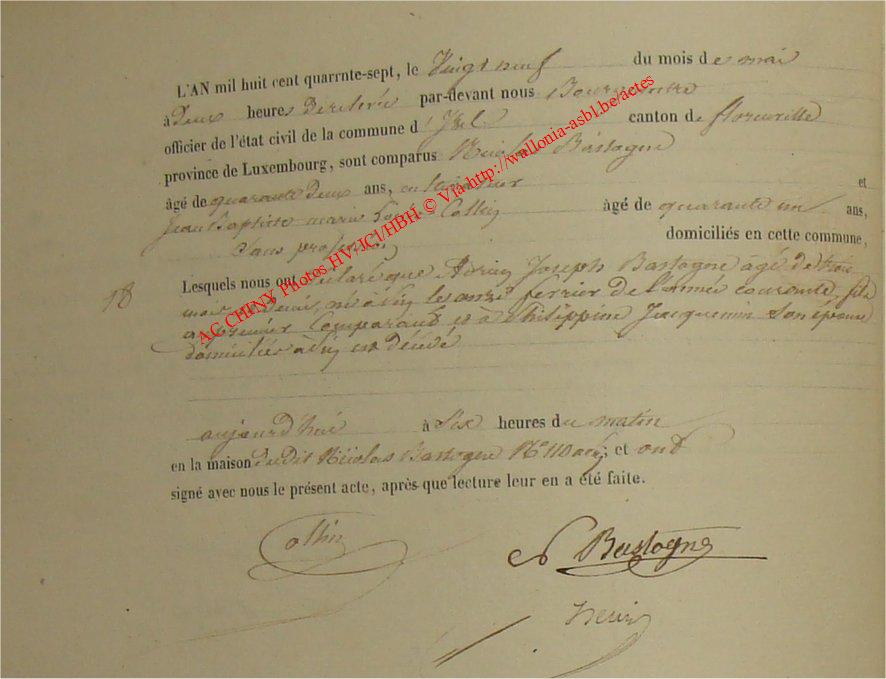 L'AN mil huit cent quarrnte-sept, le Vingt neuf du mois de mai
à Deux heures par-devant nous Bourgmestre
officier de l'état civil de la commune d' Izel canton de florenville
province de Luxembourg, sont comparus Nicolas Bastogne
âgé de quarante Deux ans, et
Jean Baptiste marie Collin âgé de quarante un ans,
Sans profession domiciliés en cette commune,
18
Lesquels nous ont que Joseph Bastogne âgé de trois
mois le onze fevrier de l'année courante fils
comparant et à Philippine Jacquemin Son épouse
domiciliés à est
aujourd'hui à Six heures du matin
en la maison dudit Nicolas Bastogne ; et ont
signé avec nous le présent acte, après que lecture leur en a été faite.
Collin
N Bastogne
AC CHINY, Photos HV/JCI/HBH © Via http://wallonia-asbl.be/actes